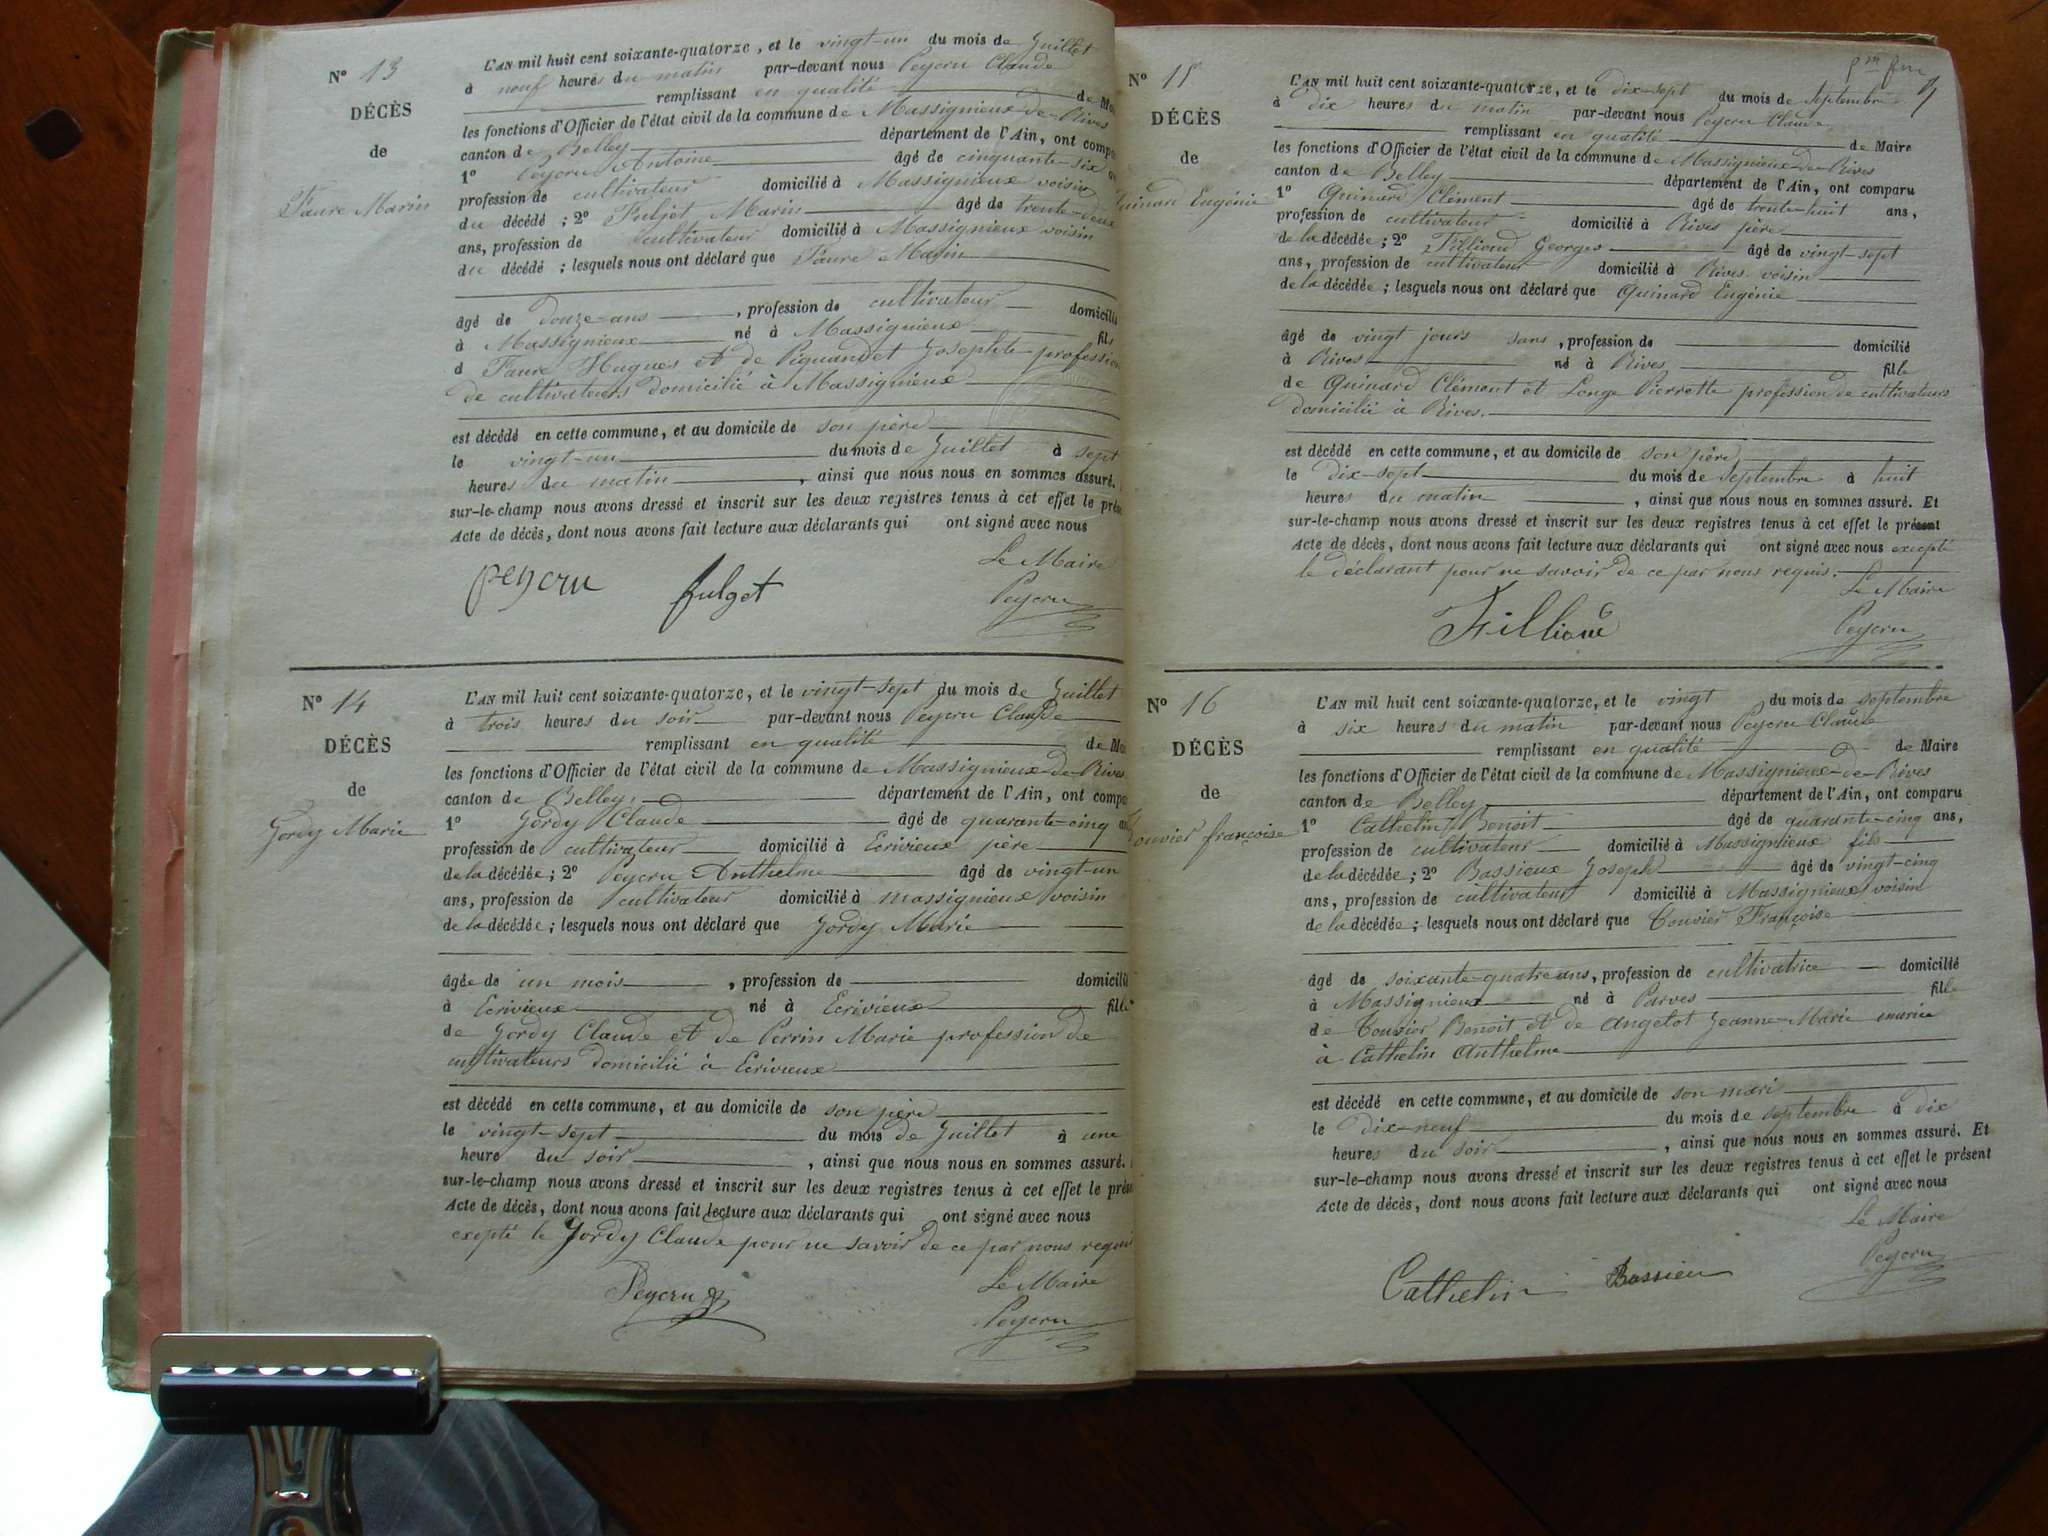 N° 13
DÉCÈS
de
Faure Marin
L'AN mil huit cent soixante-quatorze, et le vingt-un du mois de Juillet
à neuf heures du matin par-devant nous Peycru Claude
remplissant en qualité de Mai
les fonctions d'Officier de l'état civil de la commune de Massignieux-de-Rives
canton de Belley département de l'Ain, ont compa
1° Peycru Antoine âgé de cinquante-six
profession de cultivateur domicilié à Massignieux voisin
du décédé ; 2° Fuljet Marin âgé de trente-deux
ans, profession de cultivateur domicilié à Massignieux voisin
du décédé ; lesquels nous ont déclaré que Faure Marin
âgé de douze-ans , profession de cultivateur domicilié
à Massignieux né à Massignieux fils
d Faure Hugues et de Piquandet Josephte profession
de cultivateurs domicilié à Massignieux
est décédé en cette commune, et au domicile de son père
le vingt-un du mois de Juillet à sept
heures du matin , ainsi que nous nous en sommes assuré.
sur-le-champ nous avons dressé et inscrit sur les deux registres tenus à cet effet le prése
Acte de décès, dont nous avons fait lecture aux déclarants qui ont signé avec nous
Le Maire
peycru fulget Peycru
N° 14
DÉCÈS
de
Jordy Marie
L'AN mil huit cent soixante-quatorze, et le vingt-sept du mois de Juillet
à trois heures du soir par-devant nous Peycru Claude
remplissant en qualité de Mai
les fonctions d'Officier de l'état civil de la commune de Massignieux-de-Rives
canton de Belley département de l'Ain, ont compa
1° Jordy Claude âgé de quarante-cinq an
profession de cultivateur domicilié à Ecrivieux père
de la décédée ; 2° Peycru Anthelme âgé de vingt-un
ans, profession de cultivateur domicilié à Massignieux voisin
de la décédée ; lesquels nous ont déclaré que Jordy Marie
âgée de un mois , profession de domicilié
à Ecrivieux né à Ecrivieux fille
de Jordy Claude et de Perrin Marie profession de
cultivateurs domicilié à Ecrivieux
est décédé en cette commune, et au domicile de son père
le vingt-sept du mois de Juillet à une
heure du soir , ainsi que nous nous en sommes assuré.
sur-le-champ nous avons dressé et inscrit sur les deux registres tenus à cet effet le prése
Acte de décès, dont nous avons fait lecture aux déclarants qui ont signé avec nous
exepté le Jordy Claude pour ne savoir de ce par nous requi
Le Maire
Peycru Peycru
N° 15
DÉCÈS
de
uinard Eugénie
L'AN mil huit cent soixante-quatorze, et le dix-sept du mois de septembre
à dix heures du matin par-devant nous Peycru Claude
remplissant en qualité de Maire
les fonctions d'Officier de l'état civil de la commune de Massignieux-de-Rives
canton de Belley département de l'Ain, ont comparu
1° Quinard Clément âgé de trente-huit ans,
profession de cultivateur domicilié à Rives père
de la décédée ; 2° Filliond Georges âgé de vingt-sept
ans, profession de cultivateur domicilié à Rives voisin
de la décédée ; lesquels nous ont déclaré que Quinard Eugénie
âgé de vingt jours sans , profession de domicilié
à Rives né à Rives fille
de Quinard Clément et Longe Pierrette profession de cultivateurs
domicilié à Rives.
est décédé en cette commune, et au domicile de son père
le dix-sept du mois de septembre à huit
heures du matin , ainsi que nous nous en sommes assuré. Et
sur-le-champ nous avons dressé et inscrit sur les deux registres tenus à cet effet le présent
Acte de décès, dont nous avons fait lecture aux déclarants qui ont signé avec nous excepté
le déclarant pour ne savoir de ce par nous requis.
Le Maire
Peycru
N° 16
DÉCÈS
de
ouvier françoise
L'AN mil huit cent soixante-quatorze, et le vingt du mois de septembre
à six heures du matin par-devant nous Peycru Claude
remplissant en qualité de Maire
les fonctions d'Officier de l'état civil de la commune de Massignieux-de-Rives
canton de Belley département de l'Ain, ont comparu
1° Cathelin Benoit âgé de quarante-cinq ans,
profession de cultivateur domicilié à Massignieux fils
de la décédée ; 2° Bassieux Joseph âgé de vingt-cinq
ans, profession de cultivateur domicilié à Massignieux voisin
de la décédée ; lesquels nous ont déclaré que Couvier Françoise
âgé de soixante-quatre ans, profession de cultivatrice domicilié
à Massignieux né à Parves fille
de Couvier Benoit et de Angelot Jeanne-Marie mariée
à Cathelin Anthelme
est décédé en cette commune, et au domicile de son mari
le dix-neuf du mois de septembre à dix
heures du soir , ainsi que nous nous en sommes assuré. Et
sur-le-champ nous avons dressé et inscrit sur les deux registres tenus à cet effet le présent
Acte de décès, dont nous avons fait lecture aux déclarants qui ont signé avec nous
Le Maire
Cathelin Bassieu Peycru